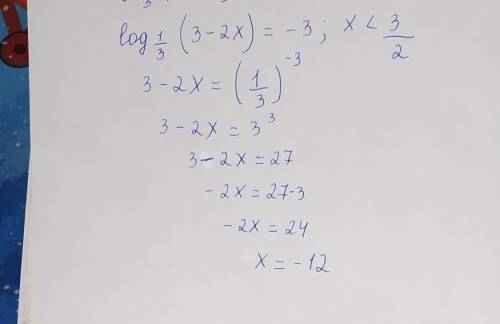 log_{1/3} (3-2x) = -3; x < 3/2
3-2x = (1/3)^{-3}
3-2x = 3^3
3-2x = 27
-2x = 27-3
-2x = 24
x = -12